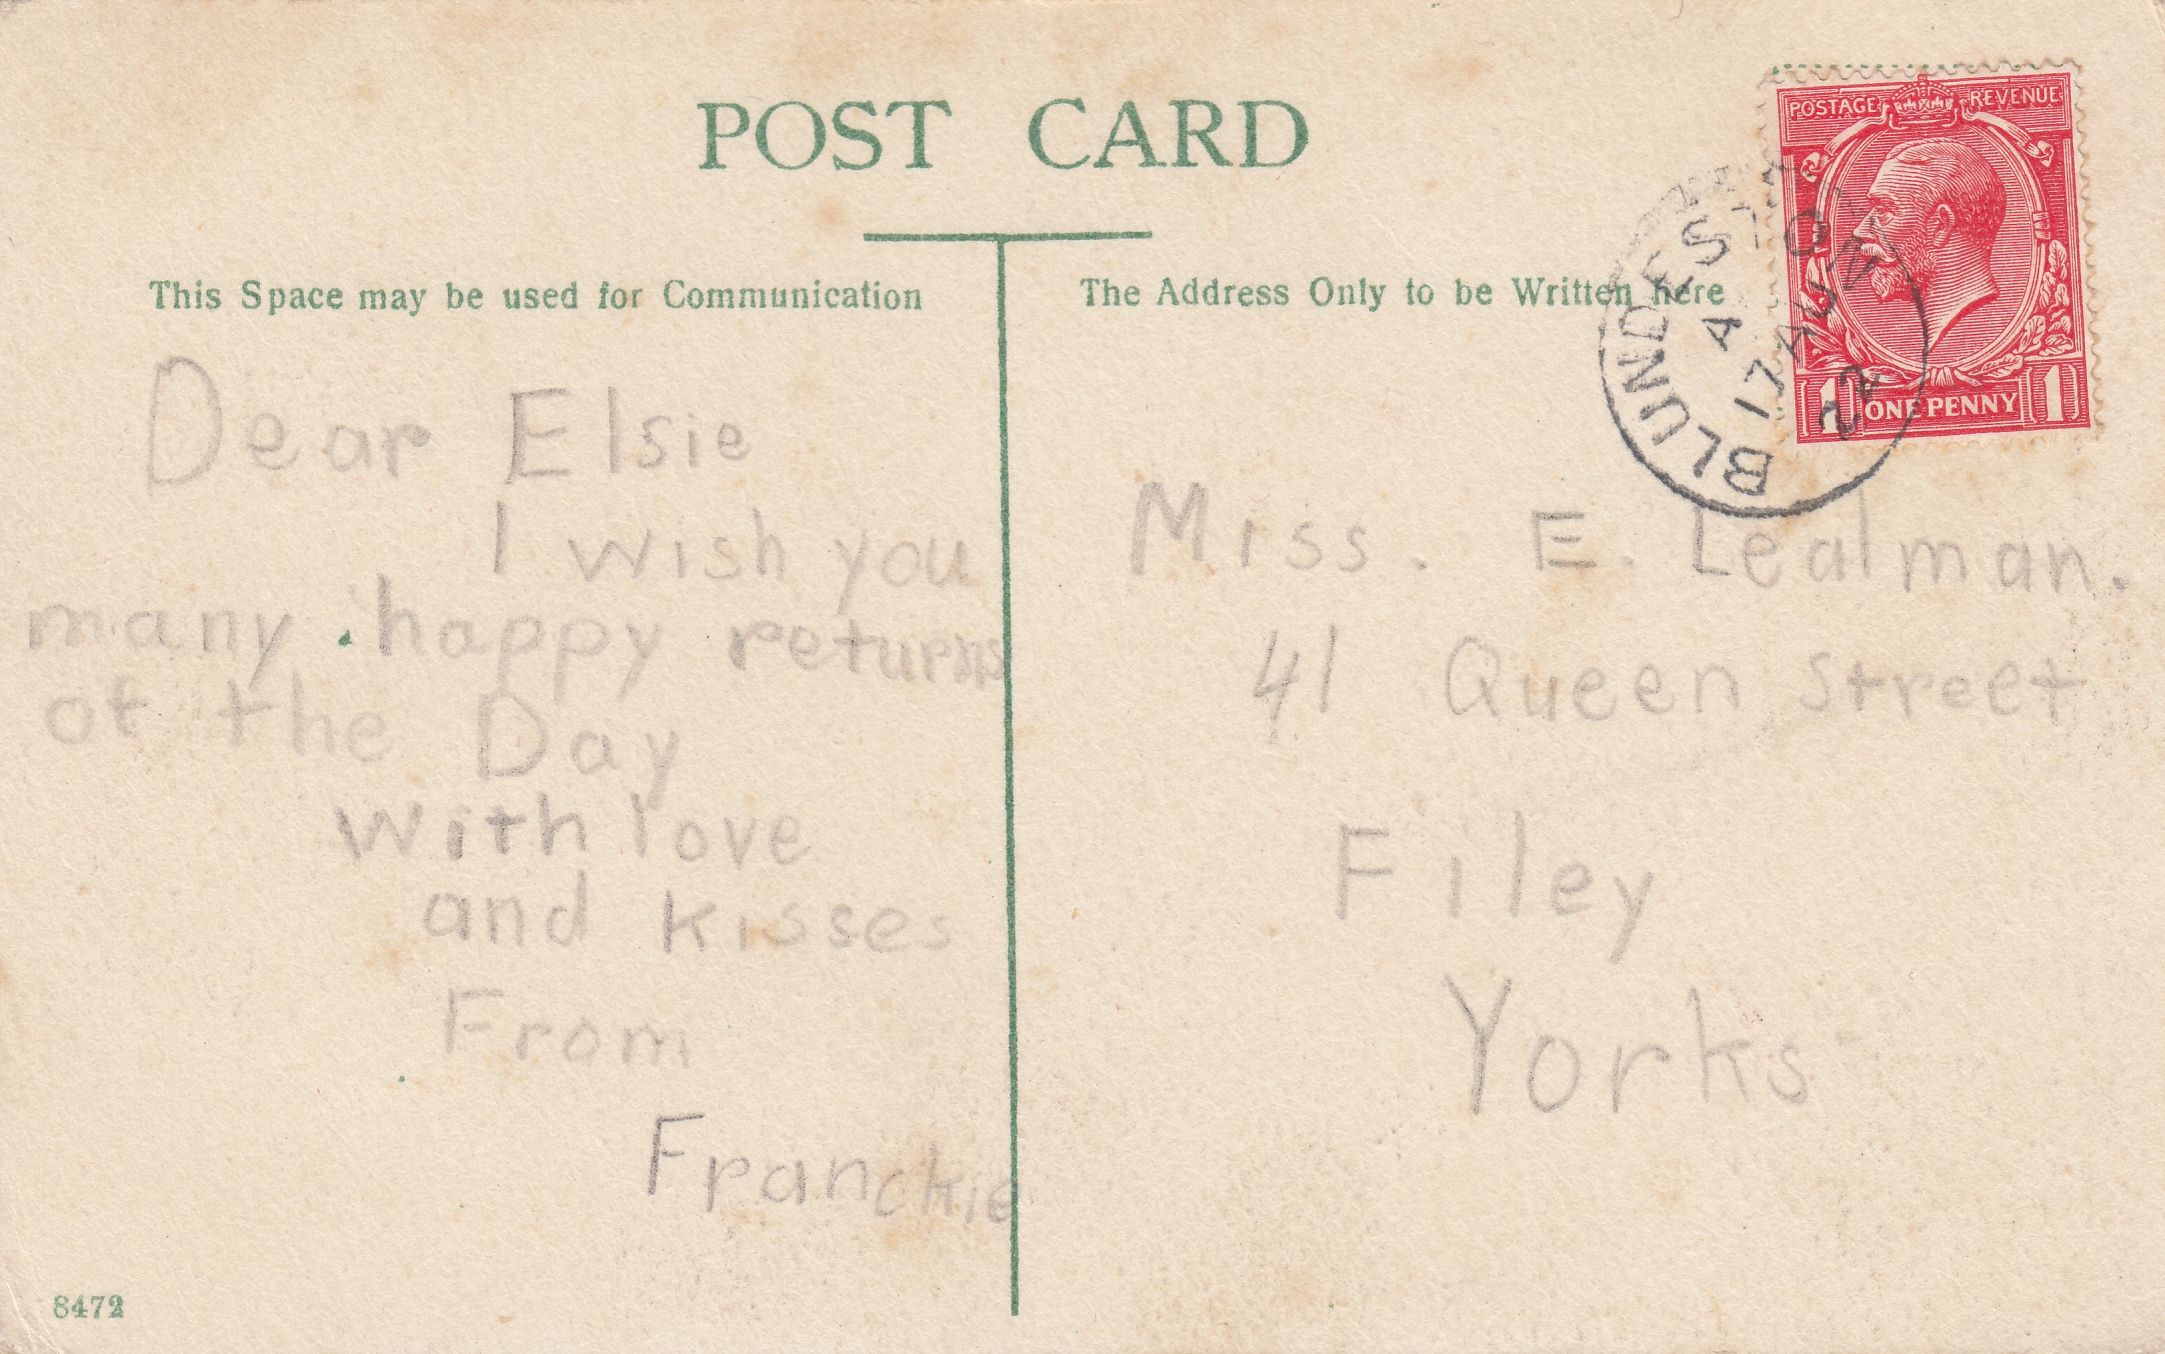 POST CARD
This Space may be used for Communication
The Address Only to be Written here
POSTAGE REVENUE
1 ONE PENNY 1
BLUNDESTON
A
17 AU
22
Dear Elsie
I wish you
many happy returns
of the Day
with love
and kisses
From
Franckie
Miss. E. Lealman.
41 Queen Street
Filey
Yorks
8472